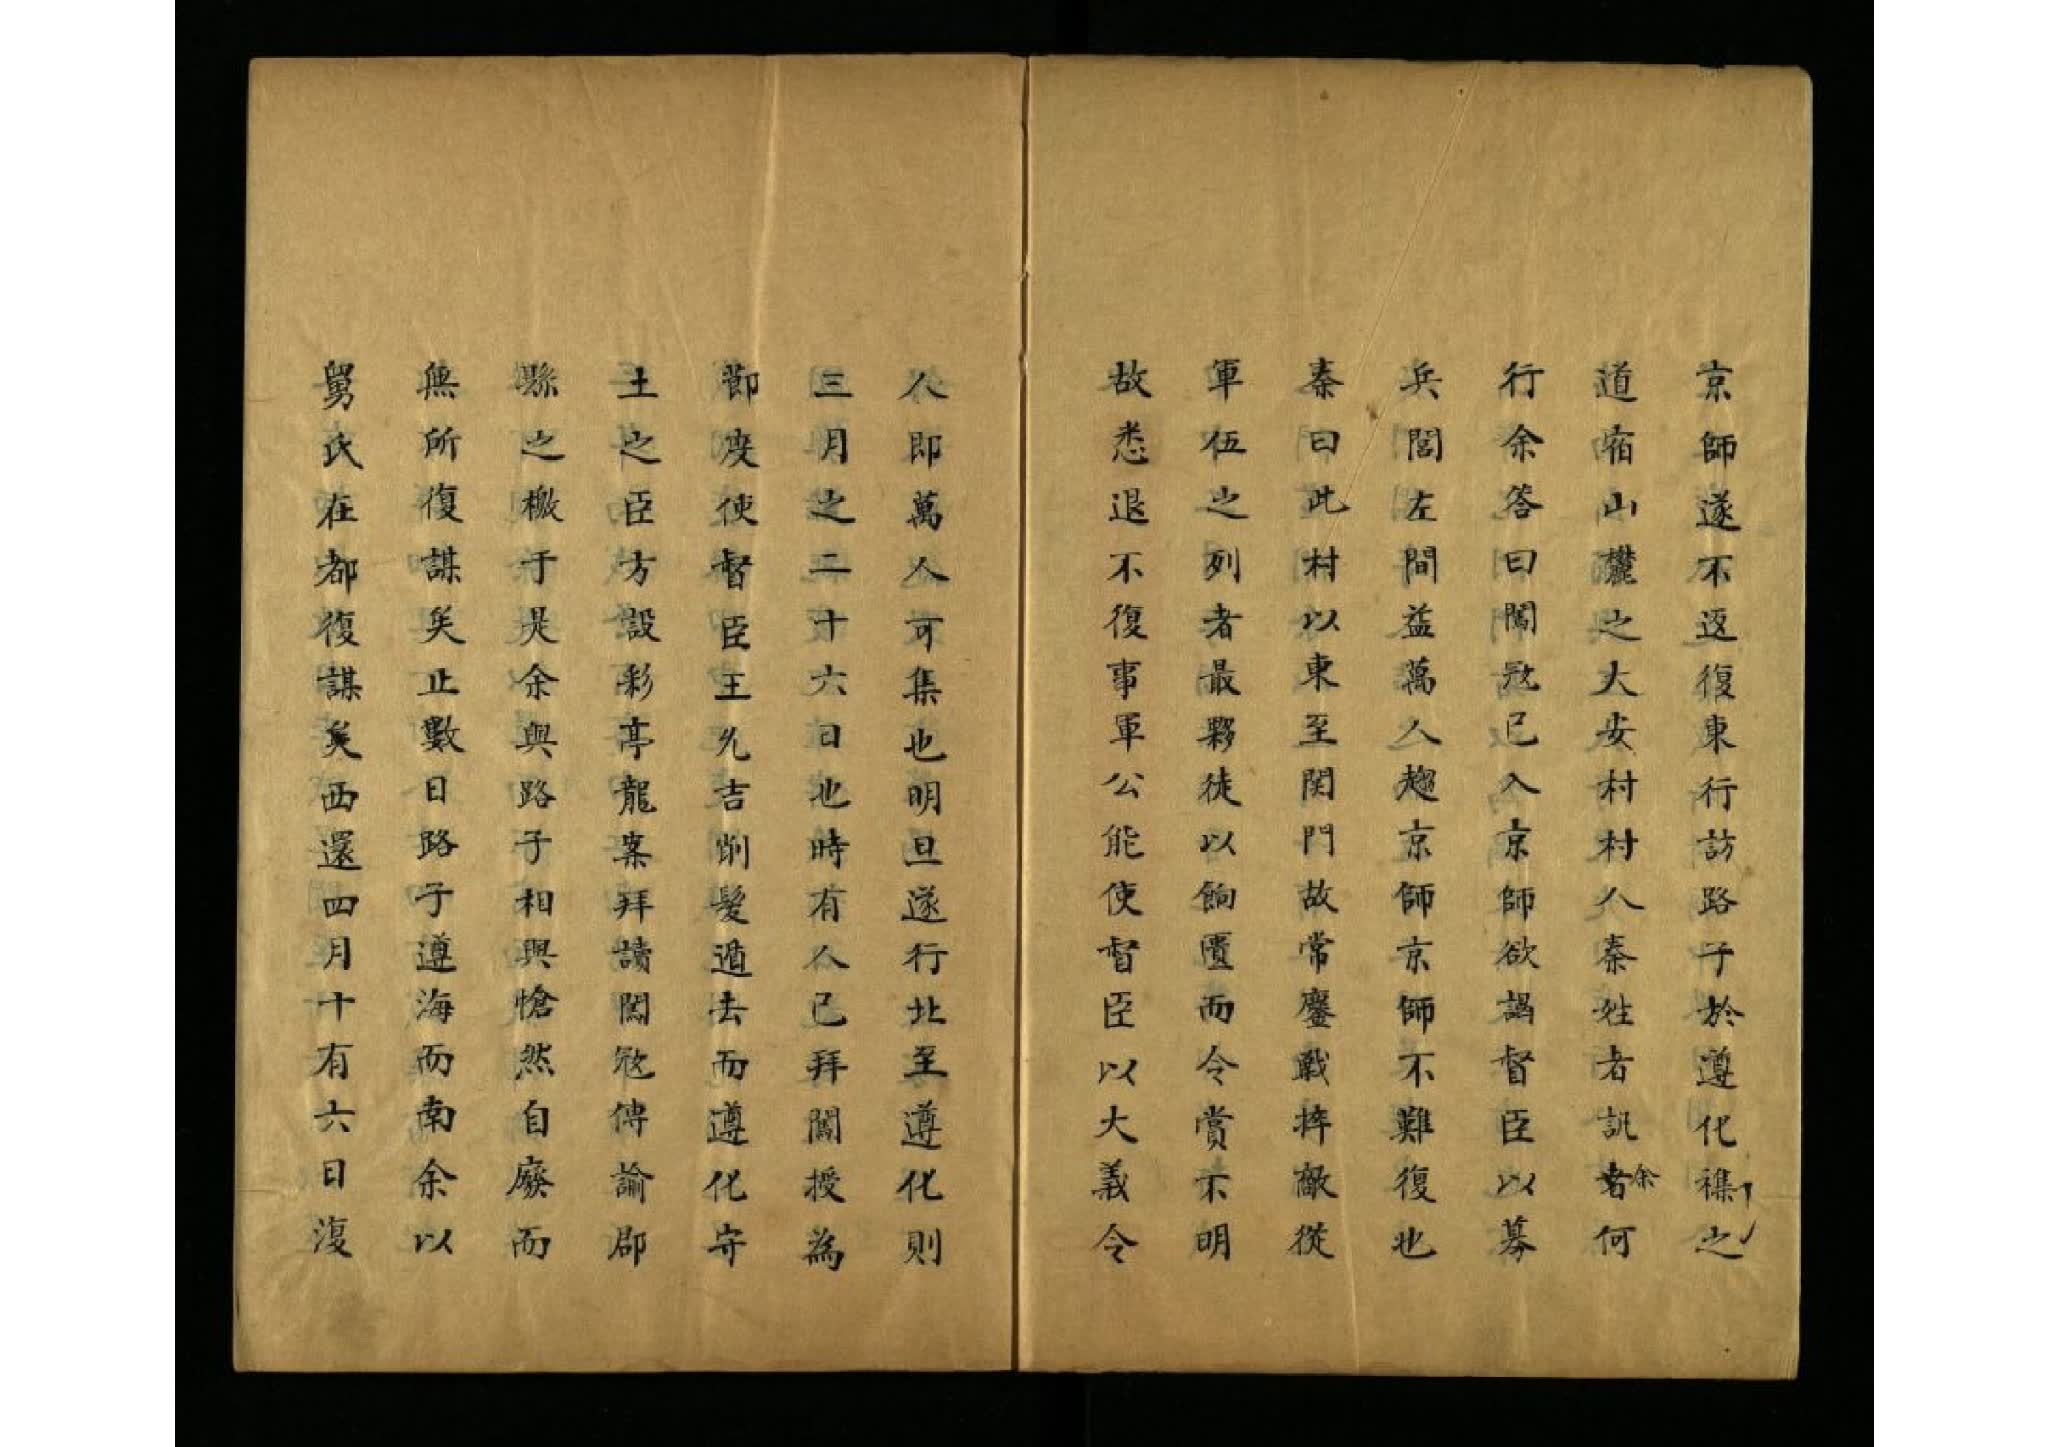 京師遂不返復東行訪路子於遵化襍之
道宿山麓之大安村村人秦姓者訊余者何
行余答曰闖寇已入京師欲謁督臣以募
兵閭左間益萬人趨京師京師不難復也
秦曰此村以東至関門故常鏖戰捽敵從
軍伍之列者最夥徒以餉匱而令賞不明
故悉退不復事軍公能使督臣以大義令
人即萬人可集也明旦遂行北至遵化則
三月之二十六日也時有人已拜闖授為
節度使督臣王允吉削髮遁去而遵化守
土之臣方設彩亭龍案拜讀闖寇傳諭郡
縣之檄于是余與路子相與愴然自廢而
無所復謀矣止數日路子遵海而南余以
舅氏在都復謀矣西還四月十有六日復